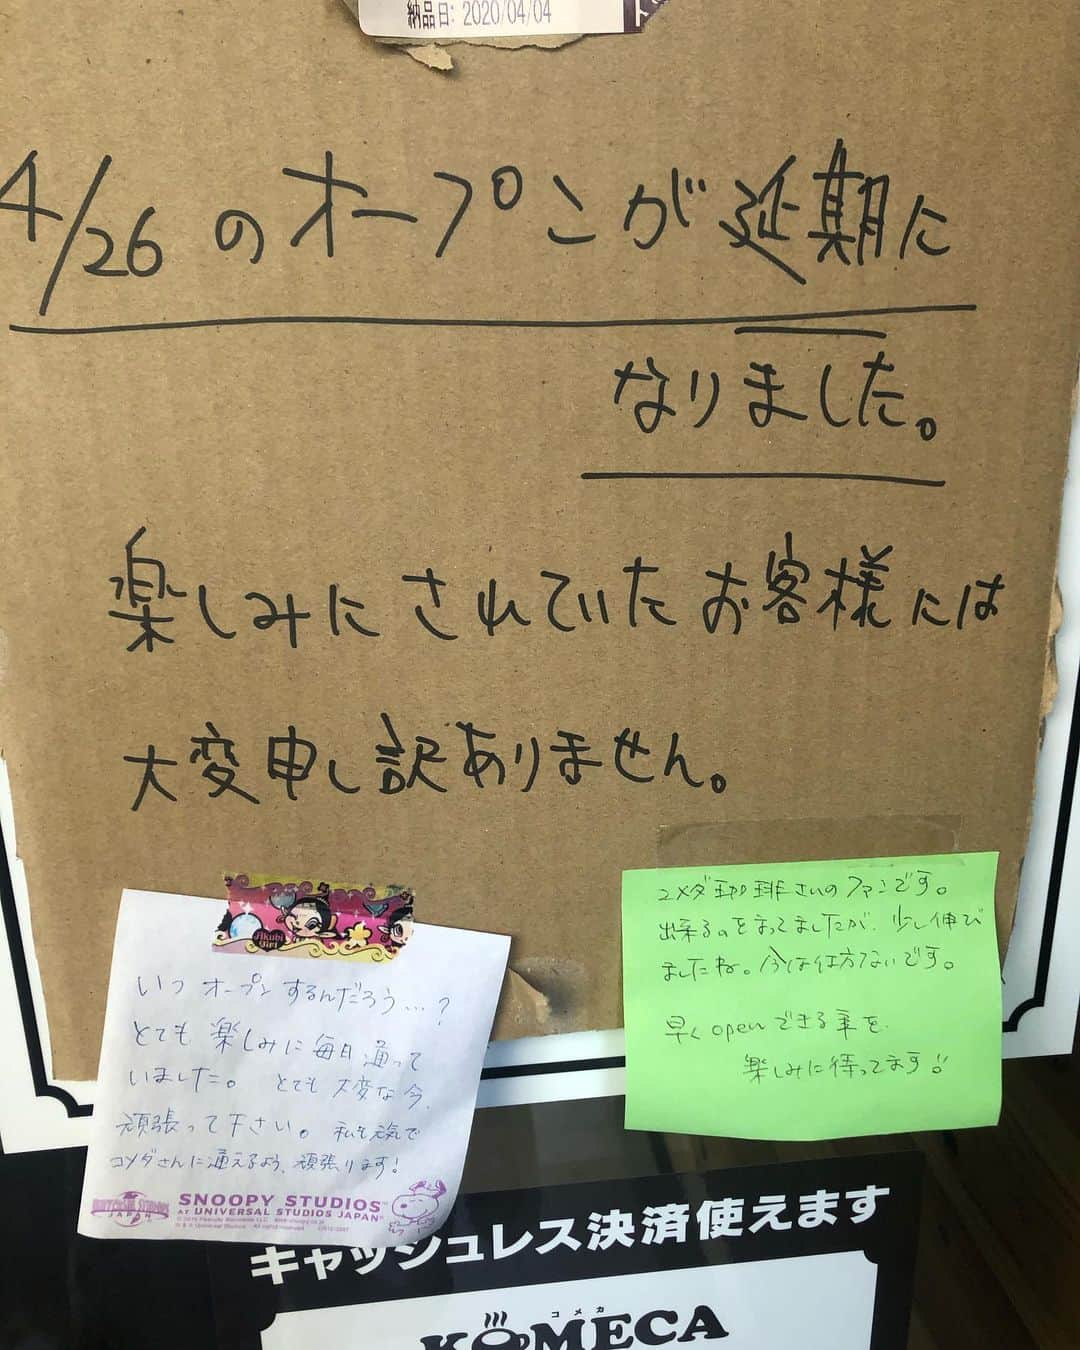 納品日: 2020/04/04
4/26のオープンが延期に
なりました。
楽しみにされていたお客様には
大変申し訳ありません。
Akubi
Girl
いつオープンするんだろう…?
とても楽しみに毎日通って
いました。とても大変な今、
頑張って下さい。私も元気で
コメダさんに通えるよう、頑張ります!
UNIVERSAL STUDIOS
JAPAN
SNOOPY STUDIOS™
AT UNIVERSAL STUDIOS JAPAN®
コメダ珈琲さんのファンです。
出来るのをまってましたが、少し伸び
ましたね。今は仕方ないです。
早くopenできる事を
楽しみに待ってます!!
キャッシュレス決済使えます
コメカ
KOMECA